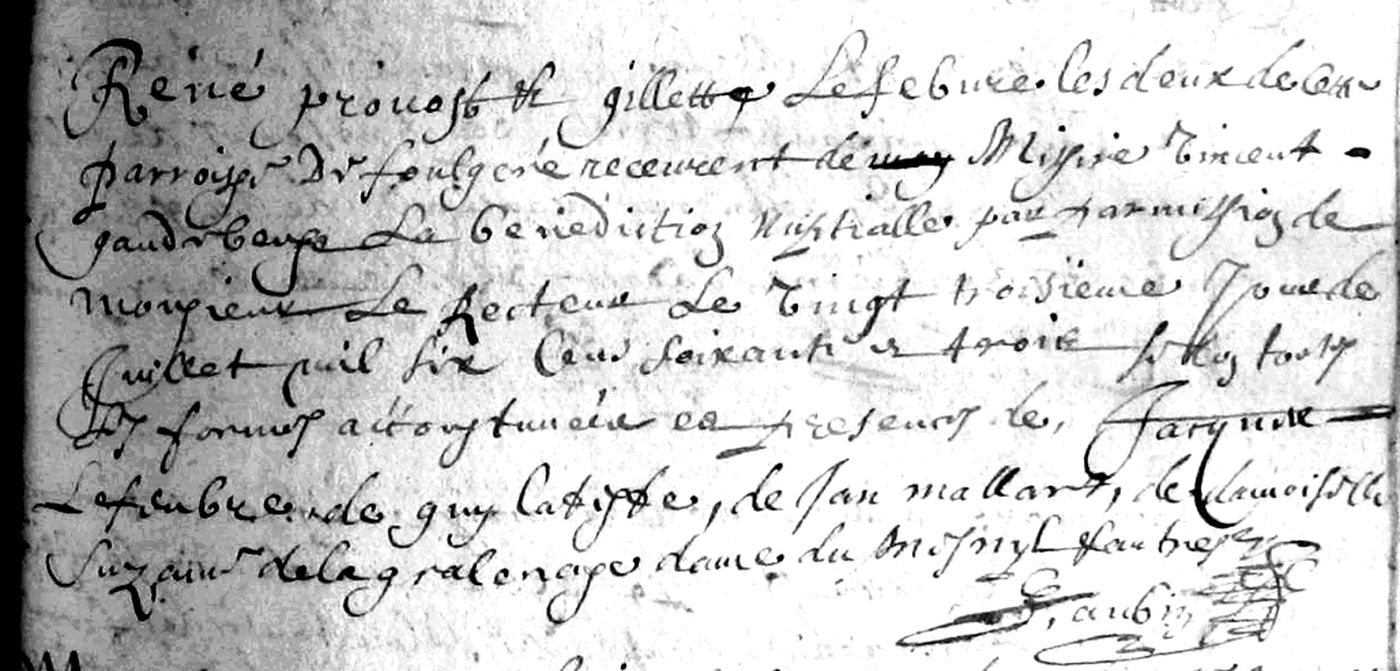 René provost et gillette Lefebvre les deux de cette
parroisse de foulgeré receurent de Missire Vincent
La benediction Nuptialle par parmission de
monsieur Le Recteur Le Vingt troisieme Jour de
Juillet mil six Cens soixante et trois selon toutes
les formes accoustumées en presences de, Jacques
Lefeubvre, de guy Latiffe, de Jan mallart, de damoiselle
Suzanne de la dame du Mesnyl & autres
aubin